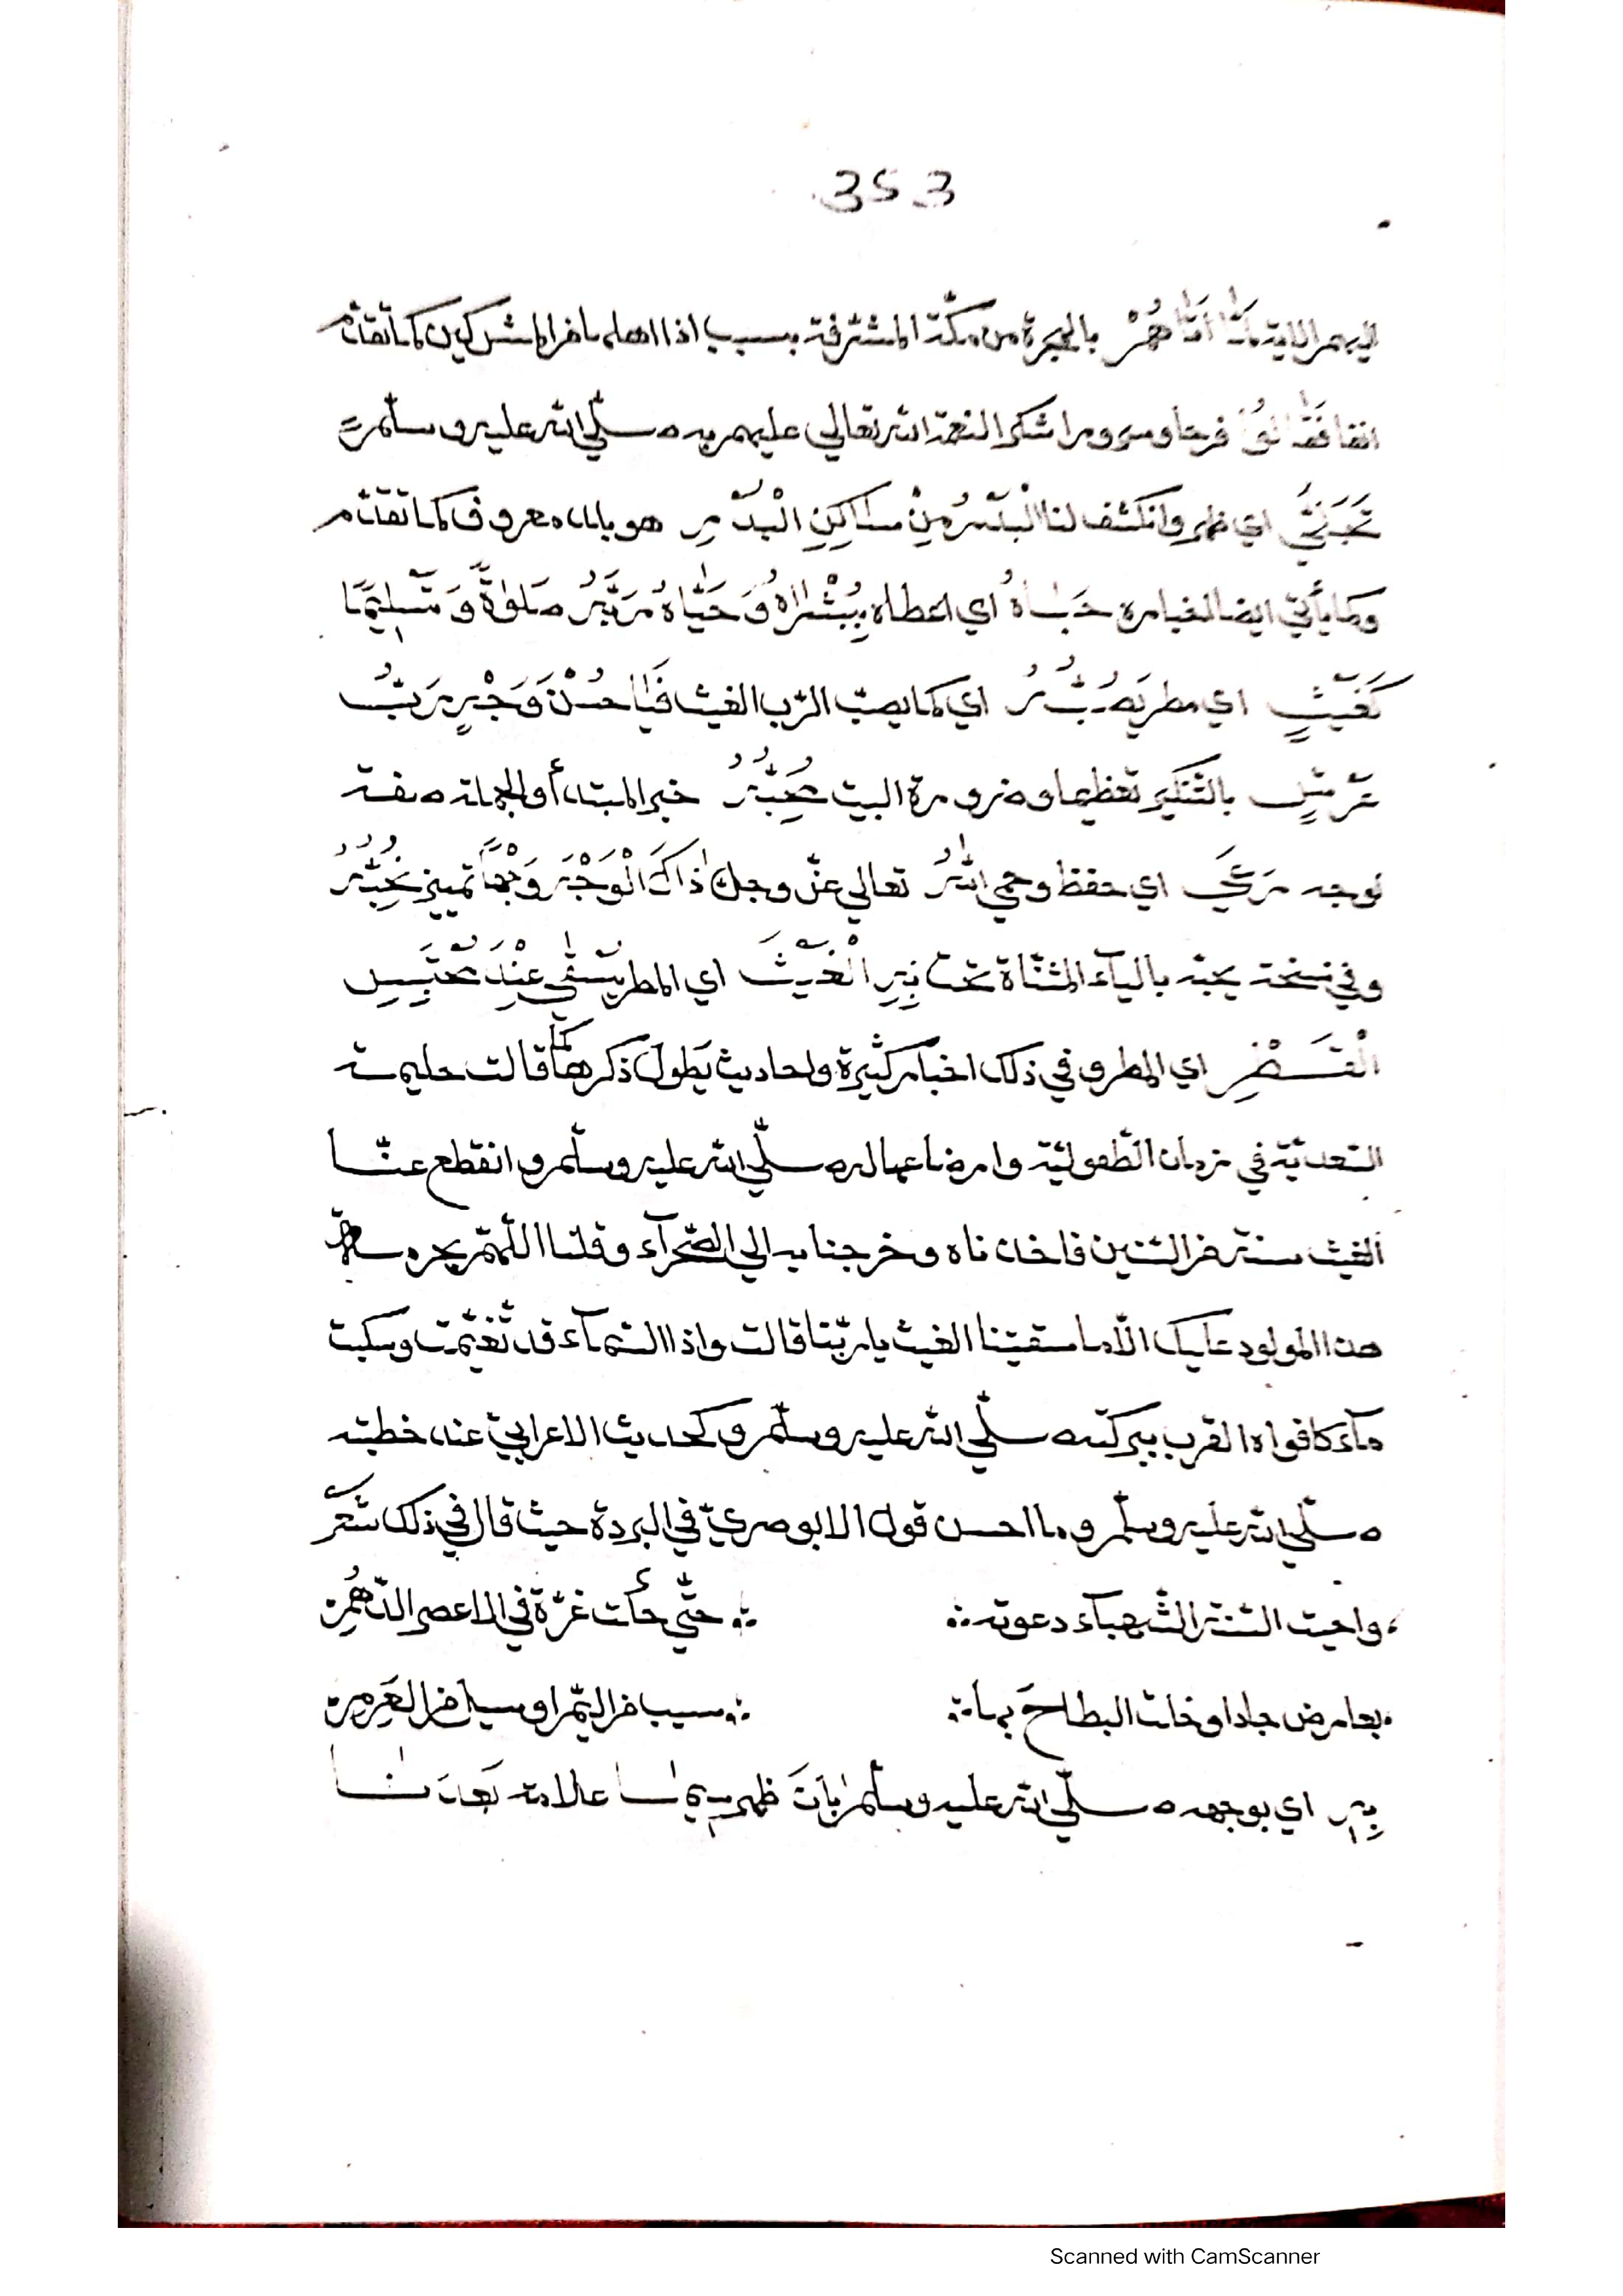 353
اليهم الاية لَمَّا أَتَاهُمْ بالهجرة من مكّة المشرّفة بسبب اذا اهلها من المشركين كما تقدّم
انفا فَقَالُوا فرحا وسرورا شكرا لنعمة الله تعالي عليهم به صلّي الله عليه وسلّم
تَجَلَّي اي ظهر وانكشف لنا الْبَدْرُ مِنْ مساكِنِ الْبَدْرِ هو باب معروف كما تقدّم
وكما يأتي ايضا لغيامره حَبَاهُ اي اعطاه بِبُشْرَاهُ وَحَيَّاهُ رَبُّهُ صَلٰوةً وَتَسْلِيمًا
كَغَيْثٍ اي مطر يَصُبُّهُ اي كما يصبّ الرّب الغيث فَيَا حُسْنَ وَجْهٍ رَبُّ
عَرْشٍ بالتّنكير تعظيما وضرورة البيت يُحِبُّهُ خبر المبتدأ والجملة صفة
لوجه رَعَي اي حفظ وحمي اللهُ تعالي عزّ وجلّ ذَاكَ الْوَجْهَ وَجْهًا تمييز نُحِبُّهُ
وفي نسخة يحبّه بالياء المثنّاة تحت بِهِ الْغَيْثَ اي المطر يُسْقٰي عِنْدَ مُحْتَبِسِ
الْقَطْرِ اي المطر وفي ذلك اخبار كثيرة واحاديث يَطولُ ذكرها كما قالت حليمة
السّعديّة في زمان الطّفوليّة وارضاعها له صلّي الله عليه وسلّم وانقطع عنّا
الغيث سنة من السّنين فاخذناه وخرجنا به الي الصّحرآء وقلنا اللّهمّ بحرمة
هذا المولود عليك الّا ما سقيتنا الغيث يا ربّنا قالت واذا السّمآء قد تغيّمت وسكبت
مآء كافواه القرب ببركته صلّي الله عليه وسلّم وكحديث الاعرابيّ عند خطبته
صلّي الله عليه وسلّم وما احسن قول الابوصريّ في البردة حيث قال في ذلك شعر
واحيت السّنة الشّهبآء دعوته ∴ حتّي حكت غرّة في الاعصر الدّهُمِ
بعارض جاد او خلت البطاحَ بها ∴ سيب من اليمّ او سيل من العَرِمِ
بِهِ اي بوجهه صلّي الله عليه وسلّم بَانَ ظهر سِيمَا علامة سَعَدَنَا
Scanned with CamScanner